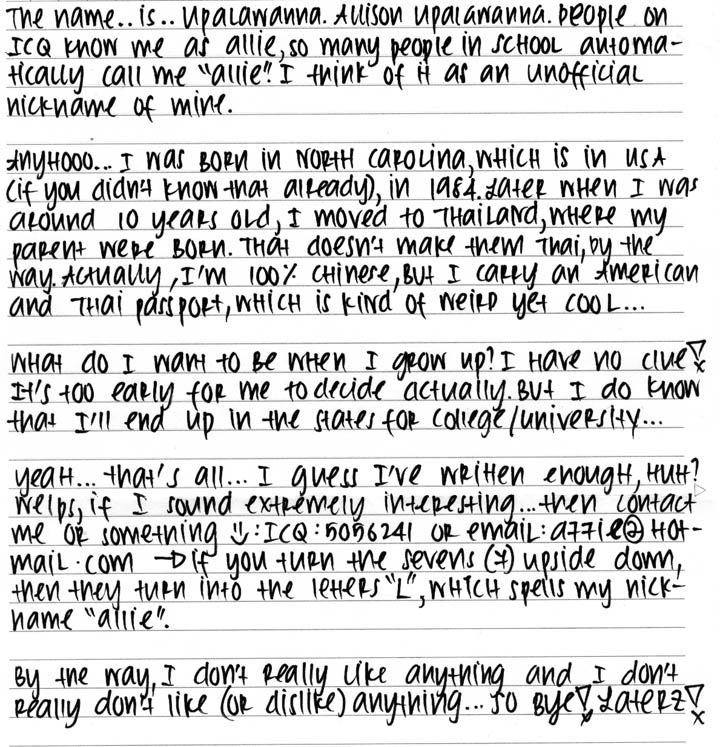 The name.. is.. Upalawanna. Allison Upalawanna. People on
ICQ know me as allie, so many people in school automa-
tically call me "allie". I think of it as an unofficial
nickname of mine.
Anyhooo... I was born in North Carolina, which is in USA
(if you didn't know that already), in 1984. Later when I was
around 10 years old, I moved to Thailand, where my
parent were born. That doesn't make them Thai, by the
way. Actually, I'm 100% Chinese, but I carry an American
and Thai passport, which is kind of weird yet cool...
What do I want to be when I grow up? I have no clue!
It's too early for me to decide actually. But I do know
that I'll end up in the states for college/university...
yeah... that's all... I guess I've written enough, huh?
Welps, if I sound extremely interesting... then contact
me or something : ICQ : 5056241 or email: a77ie@hot-
mail.com → if you turn the sevens (7) upside down,
then they turn into the letters "L", which spells my nick-
name "allie".
By the way, I don't really like anything and I don't
really don't like (or dislike) anything... so bye! Laterz!